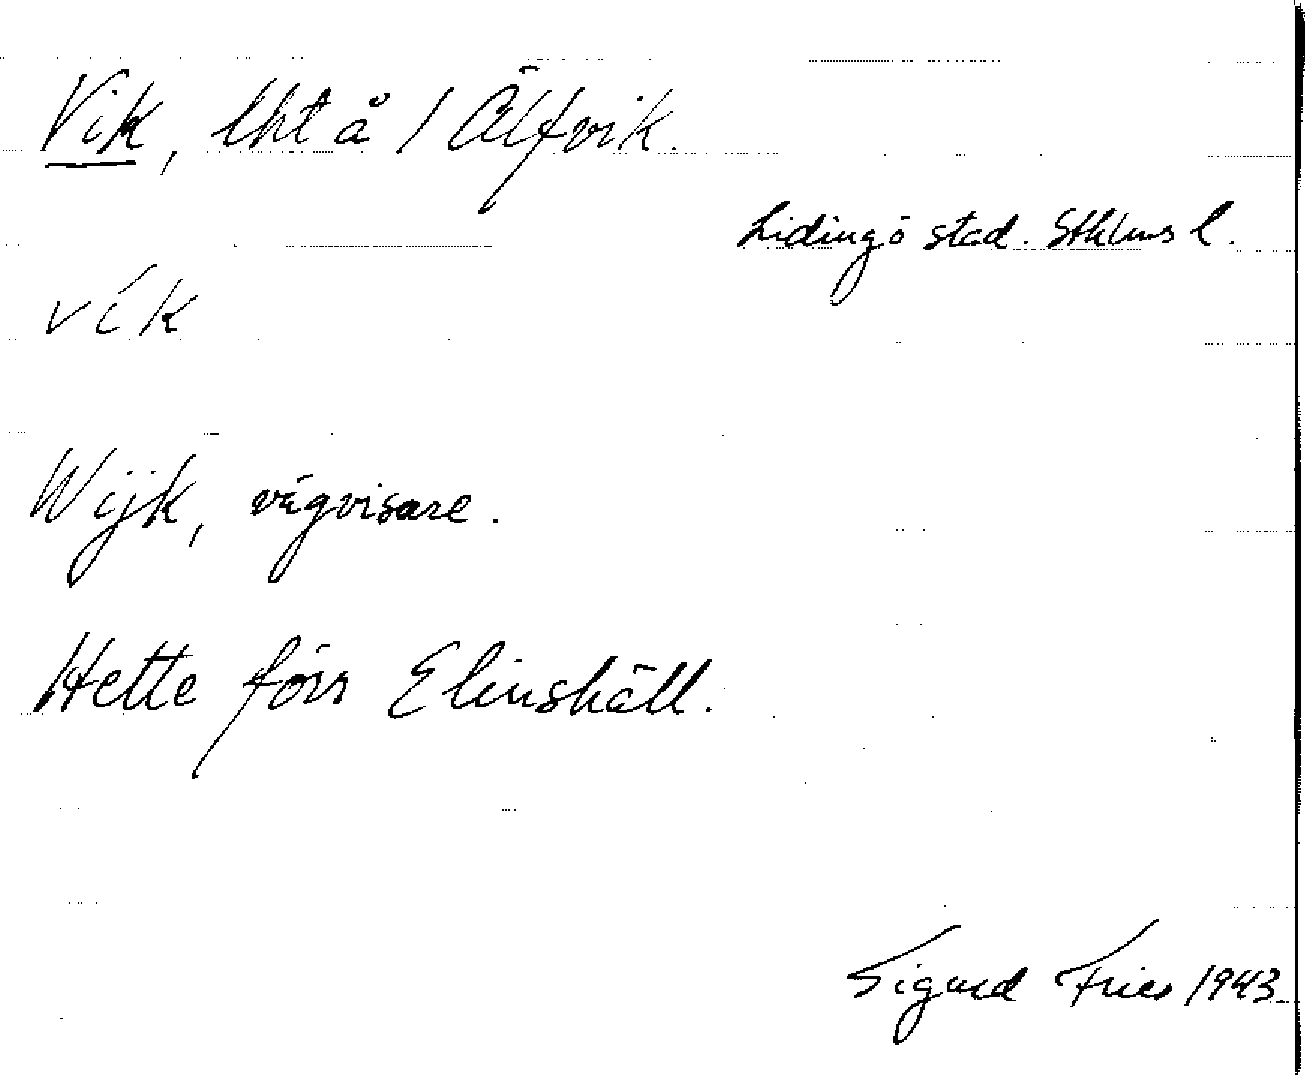 Vik, lht å 1 Älfvik.
Lidingö stad. Sthlms l.
vík
Wijk, vägvisare.
Hette förr Elinshäll.
Sigurd Fries 1943